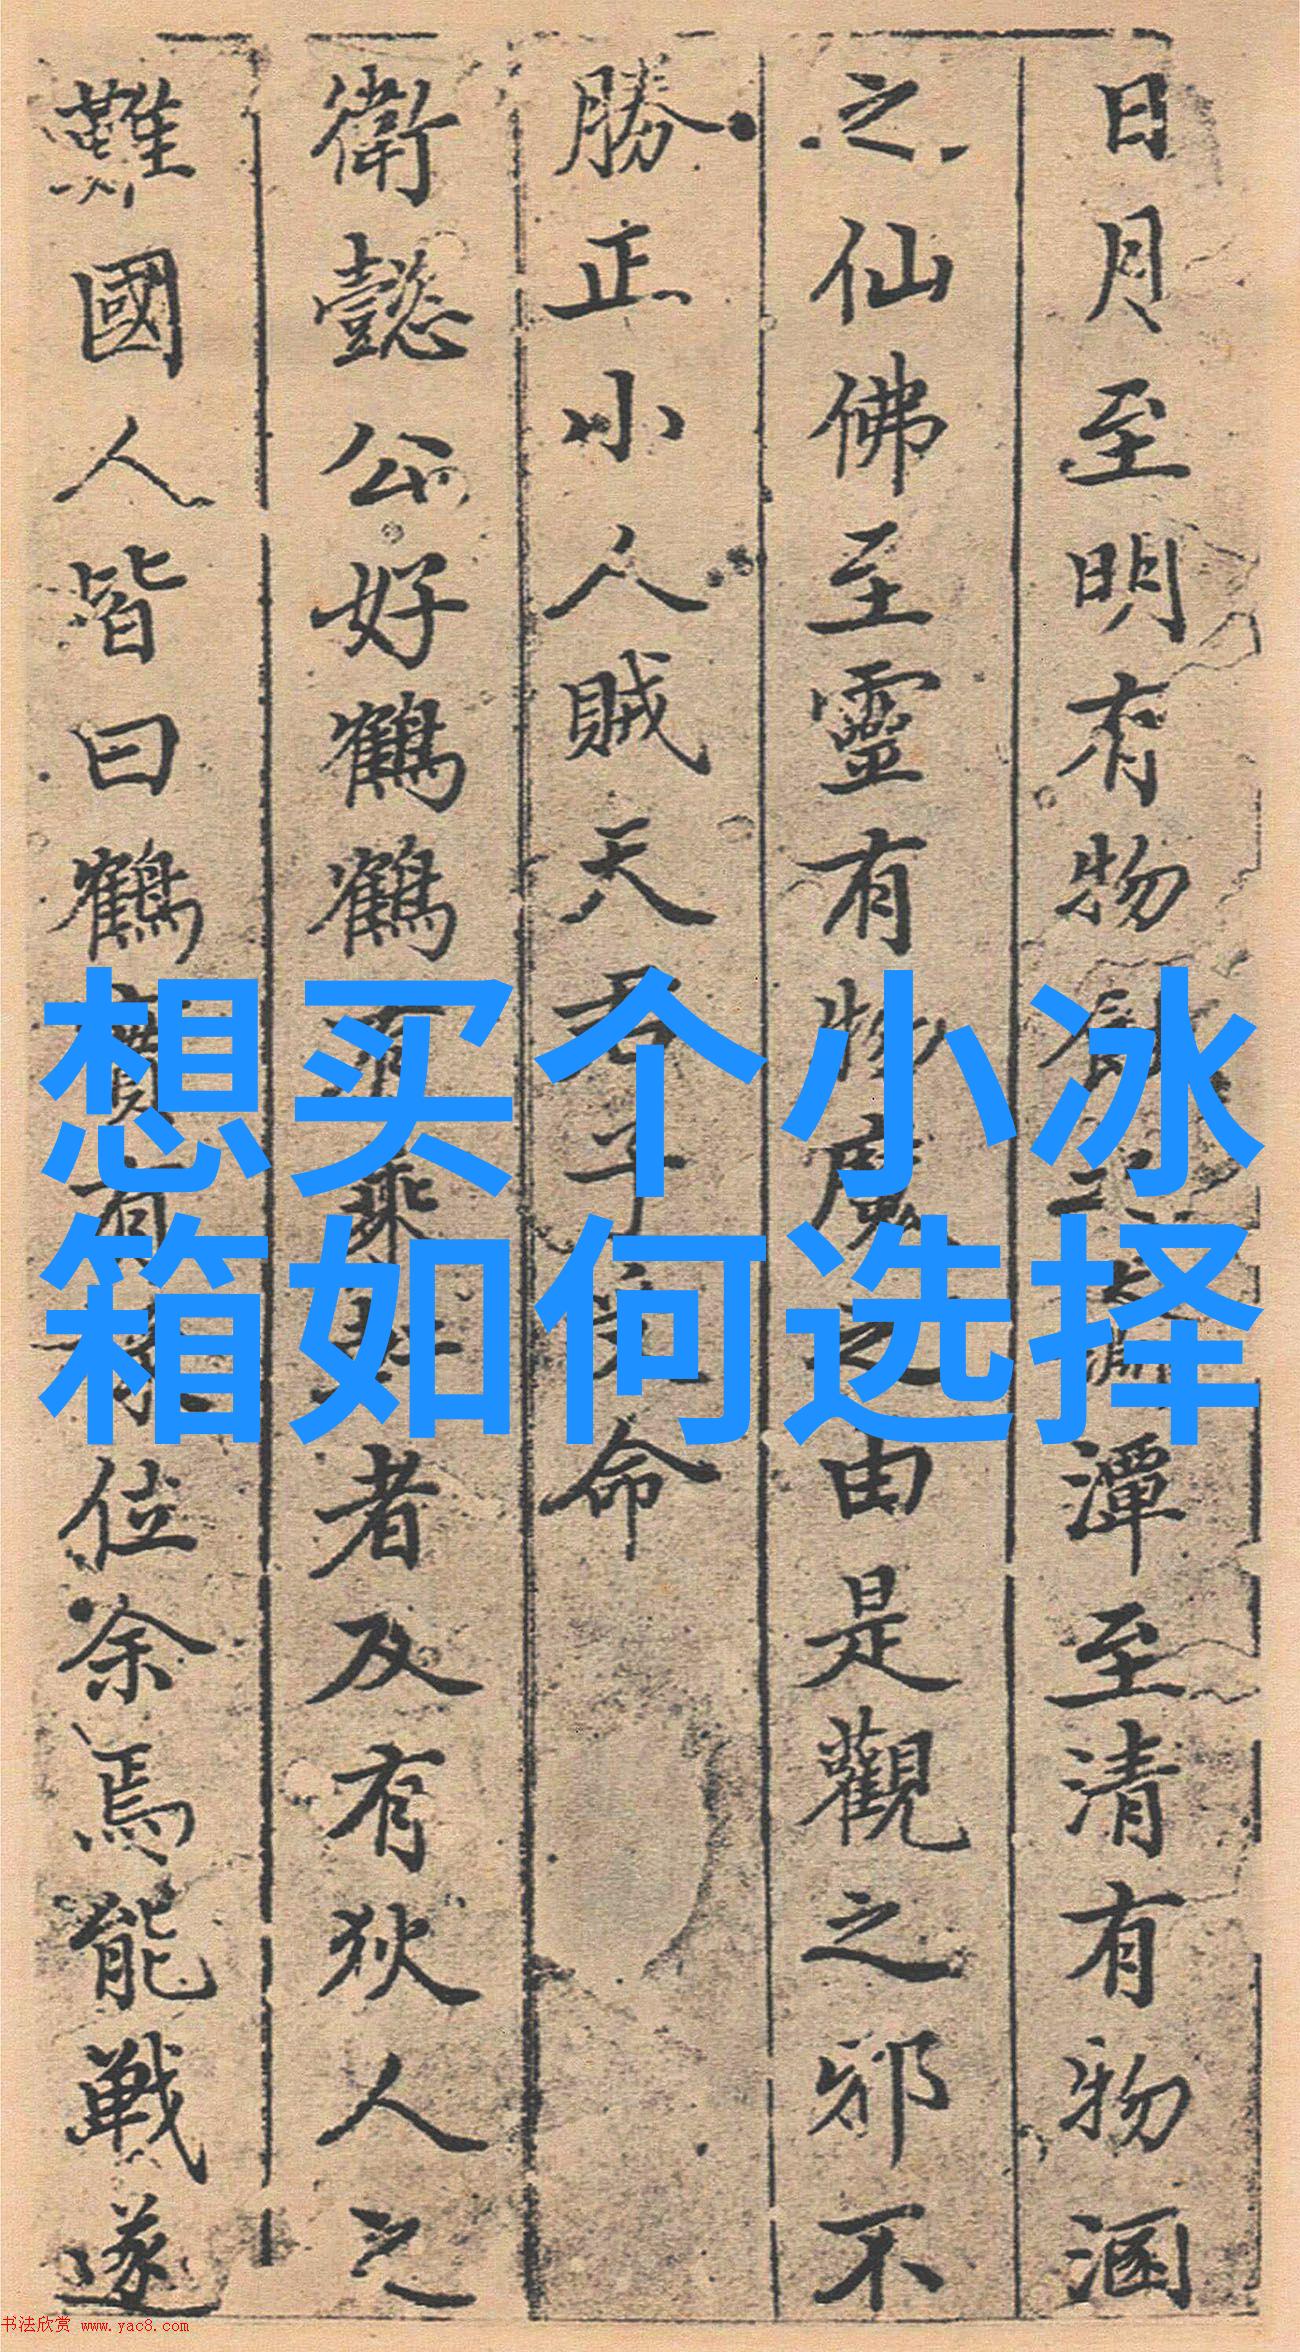 日月至明有物
潭至清有物涵
之仙佛至靈有物魔之由是觀之邪不
勝正小人賊天君子受命
衛懿公好鶴鶴有乘軒者及有狄人之
難國人皆曰鶴實有
位余焉能戰遂
想买个小冰
箱如何选择
书法欣赏 www.yac8.com